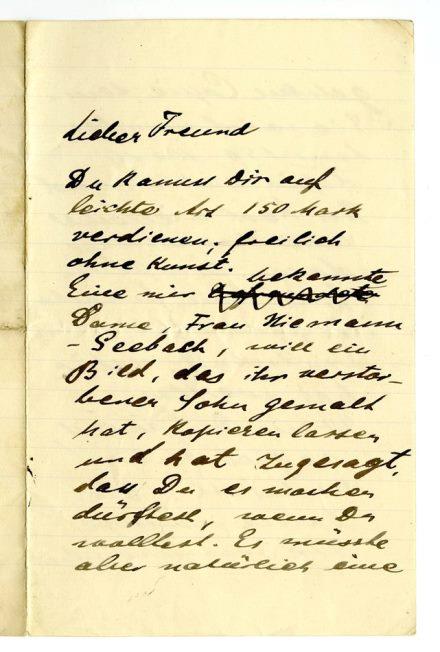 Lieber Freund
Du kannst Dir auf
leichte Art 150 Mark
verdienen, freilich
ohne Kunst.
bekannte
Eine mir
Dame, Frau Niemann
- Seebach, will ein
Bild, das ihr verstor-
bener Sohn gemalt
hat, kopieren lassen
und hat zugesagt,
dass Du es machen
dürftest, wenn Du
wolltest. Es müsste
aber natürlich eine